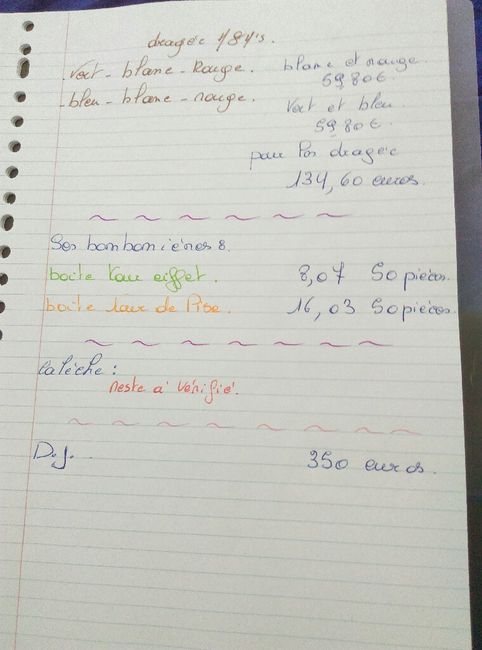 dragée
vert - blanc - Rouge.
bleu - blanc - rouge.
blanc et rouge
59,80€
Vert et bleu
59,80€.
pour les dragée
134,60 euros.
Ses bombonières
boite tour eiffel. 8,07 50 pièces.
boite tour de Pise. 16,03 50 pièces.
calèche :
reste a vérifié.
D.J.... 350 euros.